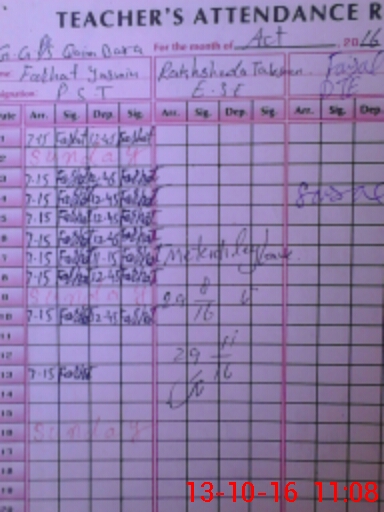 TEACHER'S ATTENDANCE R
G.G.P.S Qaim Dara For the month of Act 2016
Farhat Yasmin Rakhshenda Tabassum Faisal
P S T E.S.E DTE
Arr. Sig. Dep. Sig. Arr. Sig. Dep. Sig. Arr. Sig.
1 7-15 Farhat 12-45 Farhat
2 Sunday
3 7-15 Farhat 12-45 Farhat
4 7-15 Farhat 12-45 Farhat
5 7-15 Farhat 12-45 Farhat
6 7-15 Farhat 12-45 Farhat
7 7-15 Farhat 11-15 Farhat leave
8 7-15 Farhat 12-45 Farhat
9 Sunday 29 8/16
10 7-15 Farhat 12-45 Farhat
11
12 29 11/16
13 7-15 Farhat
14
15
16 Sunday
17
18
19
13-10-16 11:08